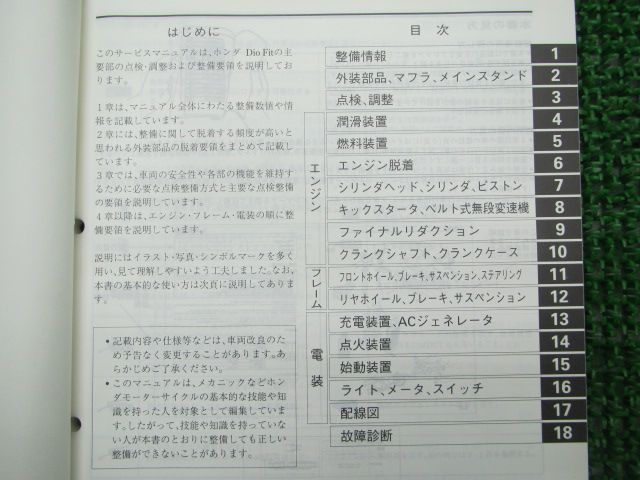 はじめに
このサービスマニュアルは、ホンダ Dio Fitの主
要部の点検・調整および整備要領を説明してお
ります。
1章は、マニュアル全体にわたる整備数値や情
報を記載しています。
2章には、整備に関して脱着する頻度が高いと
思われる外装部品の脱着要領をまとめて記載し
ています。
3章では、車両の安全性や各部の機能を維持す
るために必要な点検整備方式と主要な点検整備
の要領を説明しています。
4章以降は、エンジン・フレーム・電装の順に整
備要領を説明しています。
説明にはイラスト・写真・シンボルマークを多く
用い、見て理解しやすいよう工夫しました。なお、
本書の基本的な使い方は次頁に説明してありま
す。
・記載内容や仕様等などは、車両改良のた
め予告なく変更することがあります。あ
らかじめご了承ください。
・このマニュアルは、メカニックなどホン
ダモーターサイクルの基本的な技能や知
識を持った人を対象として編集していま
す。したがって、技能や知識を持っていな
い人が本書のとおりに整備しても正しい
整備ができないことがあります。
目 次
整備情報 1
外装部品、マフラ、メインスタンド 2
点検、調整 3
エンジン
潤滑装置 4
燃料装置 5
エンジン脱着 6
シリンダヘッド、シリンダ、ピストン 7
キックスタータ、ベルト式無段変速機 8
ファイナルリダクション 9
クランクシャフト、クランクケース 10
フレーム
フロントホイール、ブレーキ、サスペンション、ステアリング 11
リヤホイール、ブレーキ、サスペンション 12
電装
充電装置、ACジェネレータ 13
点火装置 14
始動装置 15
ライト、メータ、スイッチ 16
配線図 17
故障診断 18